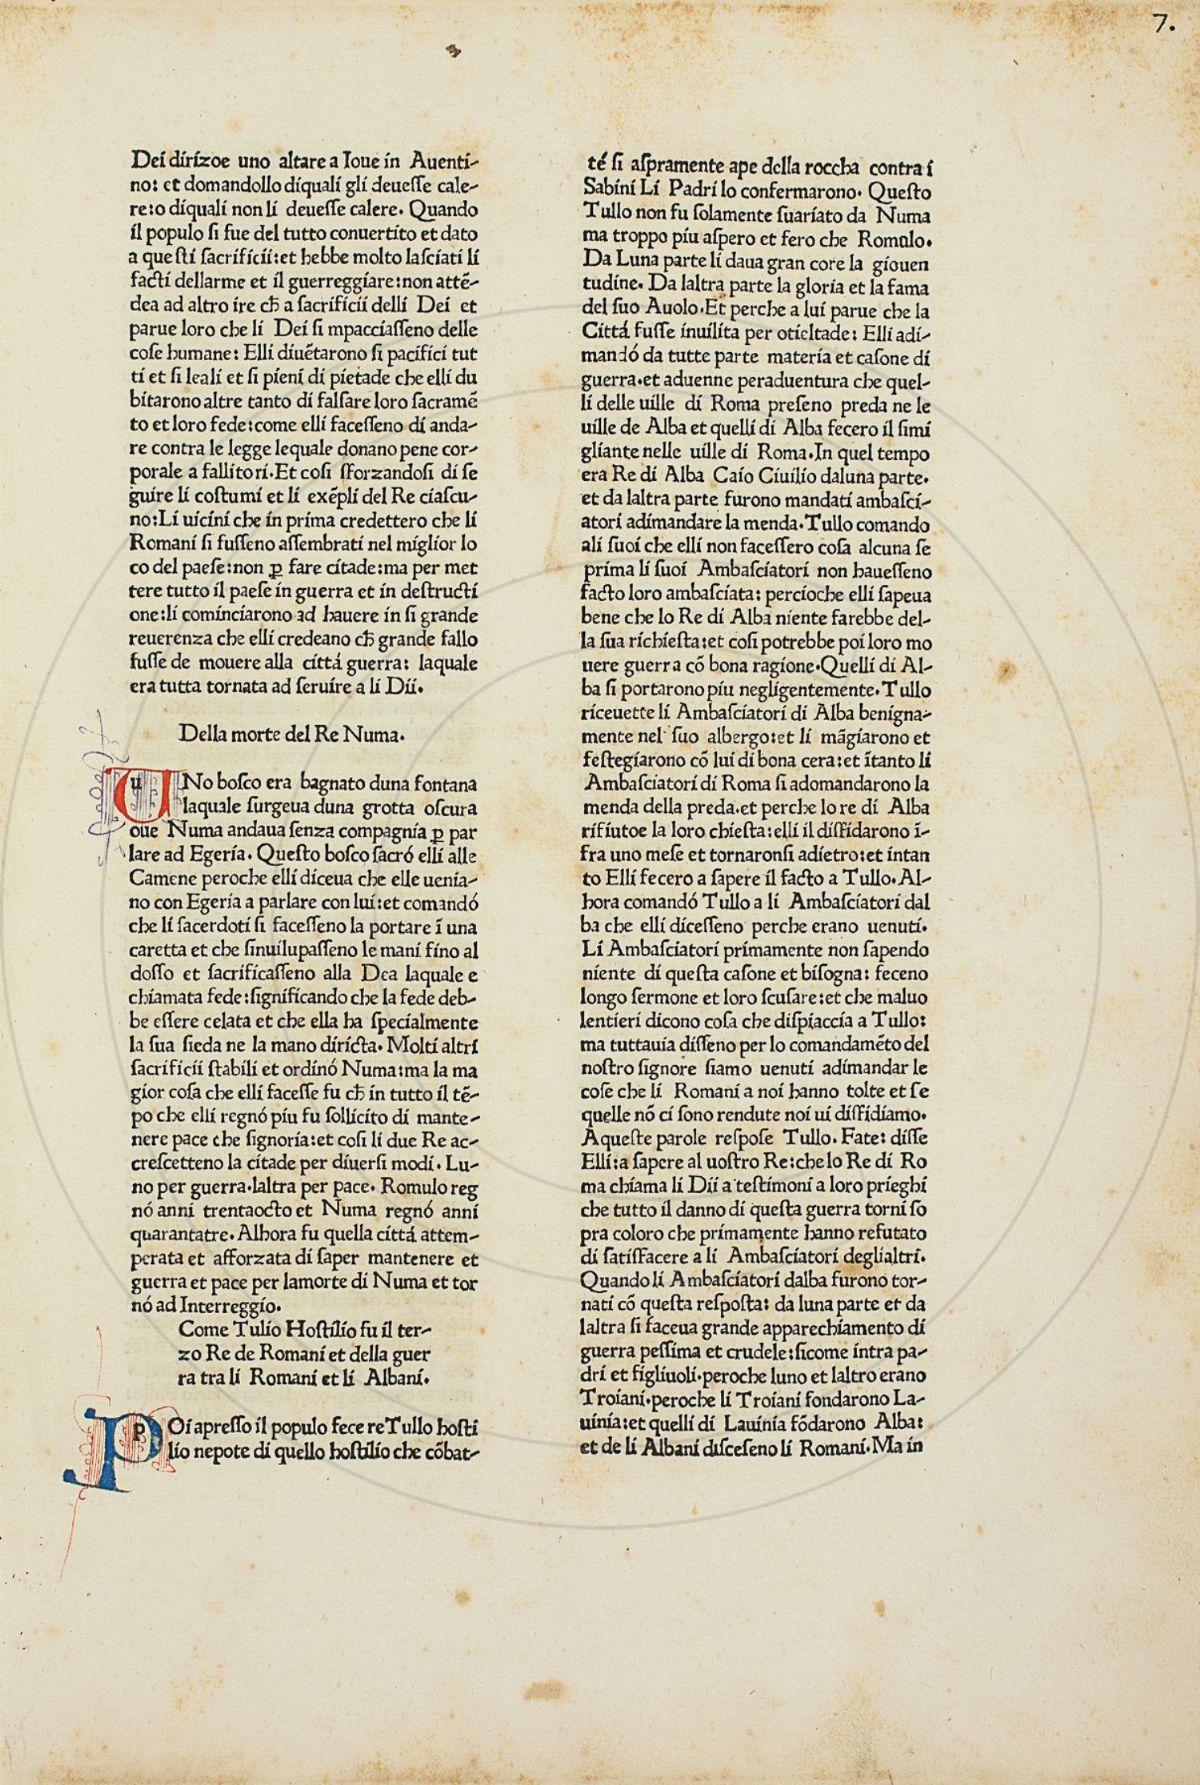 7.
Dei dirizoe uno altare a Ioue in Auenti-
no: et domandollo diquali gli deuesſe cale-
re:o diquali non li deuesſe calere. Quando
il populo ſi fue del tutto conuertito et dato
a queſti ſacrificii:et hebbe molto laſciati li
facti dellarme et il guerreggiare:non attẽ-
dea ad altro ire cħ a ſacrificii delli Dei et
parue loro che li Dei ſi mpacciaſſeno delle
coſe humane: Elli diuẽtarono ſi pacifici tut
ti et ſi leali et ſi pieni di pietade che elli du
bitarono altre tanto di falſare loro ſacramẽ
to et loro fede:come elli faceſſeno di anda-
re contra le legge lequale donano pene cor-
porale a fallitori. Et coſi ſforzandoſi di ſe
guire li coſtumi et li exẽpli del Re ciaſcu-
no:Li uicini che in prima credettero che li
Romani ſi fuſſeno aſſembrati nel miglior lo
co del paeſe:non ꝑ fare citade:ma per met
tere tutto il paeſe in guerra et in deſtructi
one:li cominciarono ad hauere in ſi grande
reuerenza che elli credeano cħ grande fallo
fuſſe de mouere alla cittá guerra: laquale
era tutta tornata ad ſeruire a li Dii.
Della morte del Re Numa.
UNo boſco era bagnato duna fontana
laquale ſurgeua duna grotta oſcura
oue Numa andaua ſenza compagnia ꝑ par
lare ad Egeria. Queſto boſco ſacró elli alle
Camene peroche elli diceua che elle uenia-
no con Egeria a parlare con lui:et comandó
che li ſacerdoti ſi faceſſeno la portare ĩ una
caretta et che ſinuilupaſſeno le mani fino al
doſſo et ſacrificaſſeno alla Dea laquale e
chiamata fede:ſignificando che la fede deb-
be eſſere celata et che ella ha ſpecialmente
la ſua ſieda ne la mano diricta. Molti altri
ſacrificii ſtabili et ordinó Numa:ma la ma
gior coſa che elli faceſſe fu cħ in tutto il tẽ-
po che elli regnó piu fu ſollicito di mante-
nere pace che ſignoria:et coſi li due Re ac-
creſcetteno la citade per diuerſi modi. Lu-
no per guerra.laltra per pace. Romulo reg
nó anni trentaocto et Numa regnó anni
quarantatre. Alhora fu quella cittá attem-
perata et afforzata di ſaper mantenere et
guerra et pace per lamorte di Numa et tor
nó ad Interreggio.
Come Tulio Hoſtilio fu il ter-
zo Re de Romani et della guer
ra tra li Romani et li Albani.
POi apreſſo il populo fece re Tullo hoſti
lio nepote di quello hoſtilio che cõbat-
té ſi aſpramente ape della roccha contra i
Sabini Li Padri lo confermarono. Queſto
Tullo non fu ſolamente ſuariato da Numa
ma troppo piu aſpero et fero che Romolo.
Da Luna parte li daua gran core la giouen
tudine. Da laltra parte la gloria et la fama
del ſuo Auolo.Et perche a lui parue che la
Cittá fuſſe inuilita per otieltade: Elli adi-
mandó da tutte parte materia et caſone di
guerra.et aduenne peraduentura che quel-
li delle uille di Roma preſeno preda ne le
uille de Alba et quelli di Alba fecero il ſimi
gliante nelle uille di Roma.In quel tempo
era Re di Alba Caio Ciuilio daluna parte.
et da laltra parte furono mandati ambaſci-
atori adimandare la menda.Tullo comando
ali ſuoi che elli non faceſſero coſa alcuna ſe
prima li ſuoi Ambaſciatori non haueſſeno
facto loro ambaſciata: percioche elli ſapeua
bene che lo Re di Alba niente farebbe del-
la ſua richieſta:et coſi potrebbe poi loro mo
uere guerra cõ bona ragione.Quelli di Al-
ba ſi portarono piu negligentemente.Tullo
riceuette li Ambaſciatori di Alba benigna-
mente nel ſuo albergo:et li mãgiarono et
feſtegiarono cõ lui di bona cera:et ĩtanto li
Ambaſciatori di Roma ſi adomandarono la
menda della preda.et perche lo re di Alba
rifiutoe la loro chieſta:elli il diffidarono ĩ-
fra uno meſe et tornaronſi adietro:et intan
to Elli fecero a ſapere il facto a Tullo.Al-
hora comandó Tullo a li Ambaſciatori dal
ba che elli diceſſeno perche erano uenuti.
Li Ambaſciatori primamente non ſapendo
niente di queſta caſone et biſogna: feceno
longo ſermone et loro ſcuſare:et che maluo
lentieri dicono coſa che diſpiaccia a Tullo:
ma tuttauia diſſeno per lo comandamẽto del
noſtro ſignore ſiamo uenuti adimandar le
coſe che li Romani a noi hanno tolte et ſe
quelle nõ ci ſono rendute noi ui diffidiamo.
Aqueſte parole reſpoſe Tullo. Fate: diſſe
Elli:a ſapere al uoſtro Re:che lo Re di Ro
ma chiama li Dii a teſtimoni a loro prieghi
che tutto il danno di queſta guerra torni ſo
pra coloro che primamente hanno refutato
di ſatiſfacere a li Ambaſciatori deglialtri.
Quando li Ambaſciatori dalba furono tor-
nati cõ queſta reſpoſta: da luna parte et da
laltra ſi faceua grande apparechiamento di
guerra peſſima et crudele:ſicome intra pa-
dri et figliuoli.peroche luno et laltro erano
Troiani.peroche li Troiani fondarono La-
uinia:et quelli di Lauinia fõdarono Alba:
et de li Albani diſceſeno li Romani.Ma in